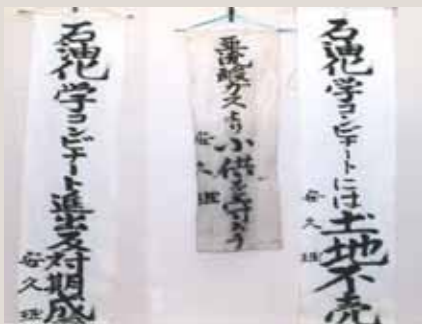 石油化学コンビナートには土地不売
安久班
亜硫酸ガスより小供を守ろう
安久班
石油化学コンビナート進出反対期成
安久班